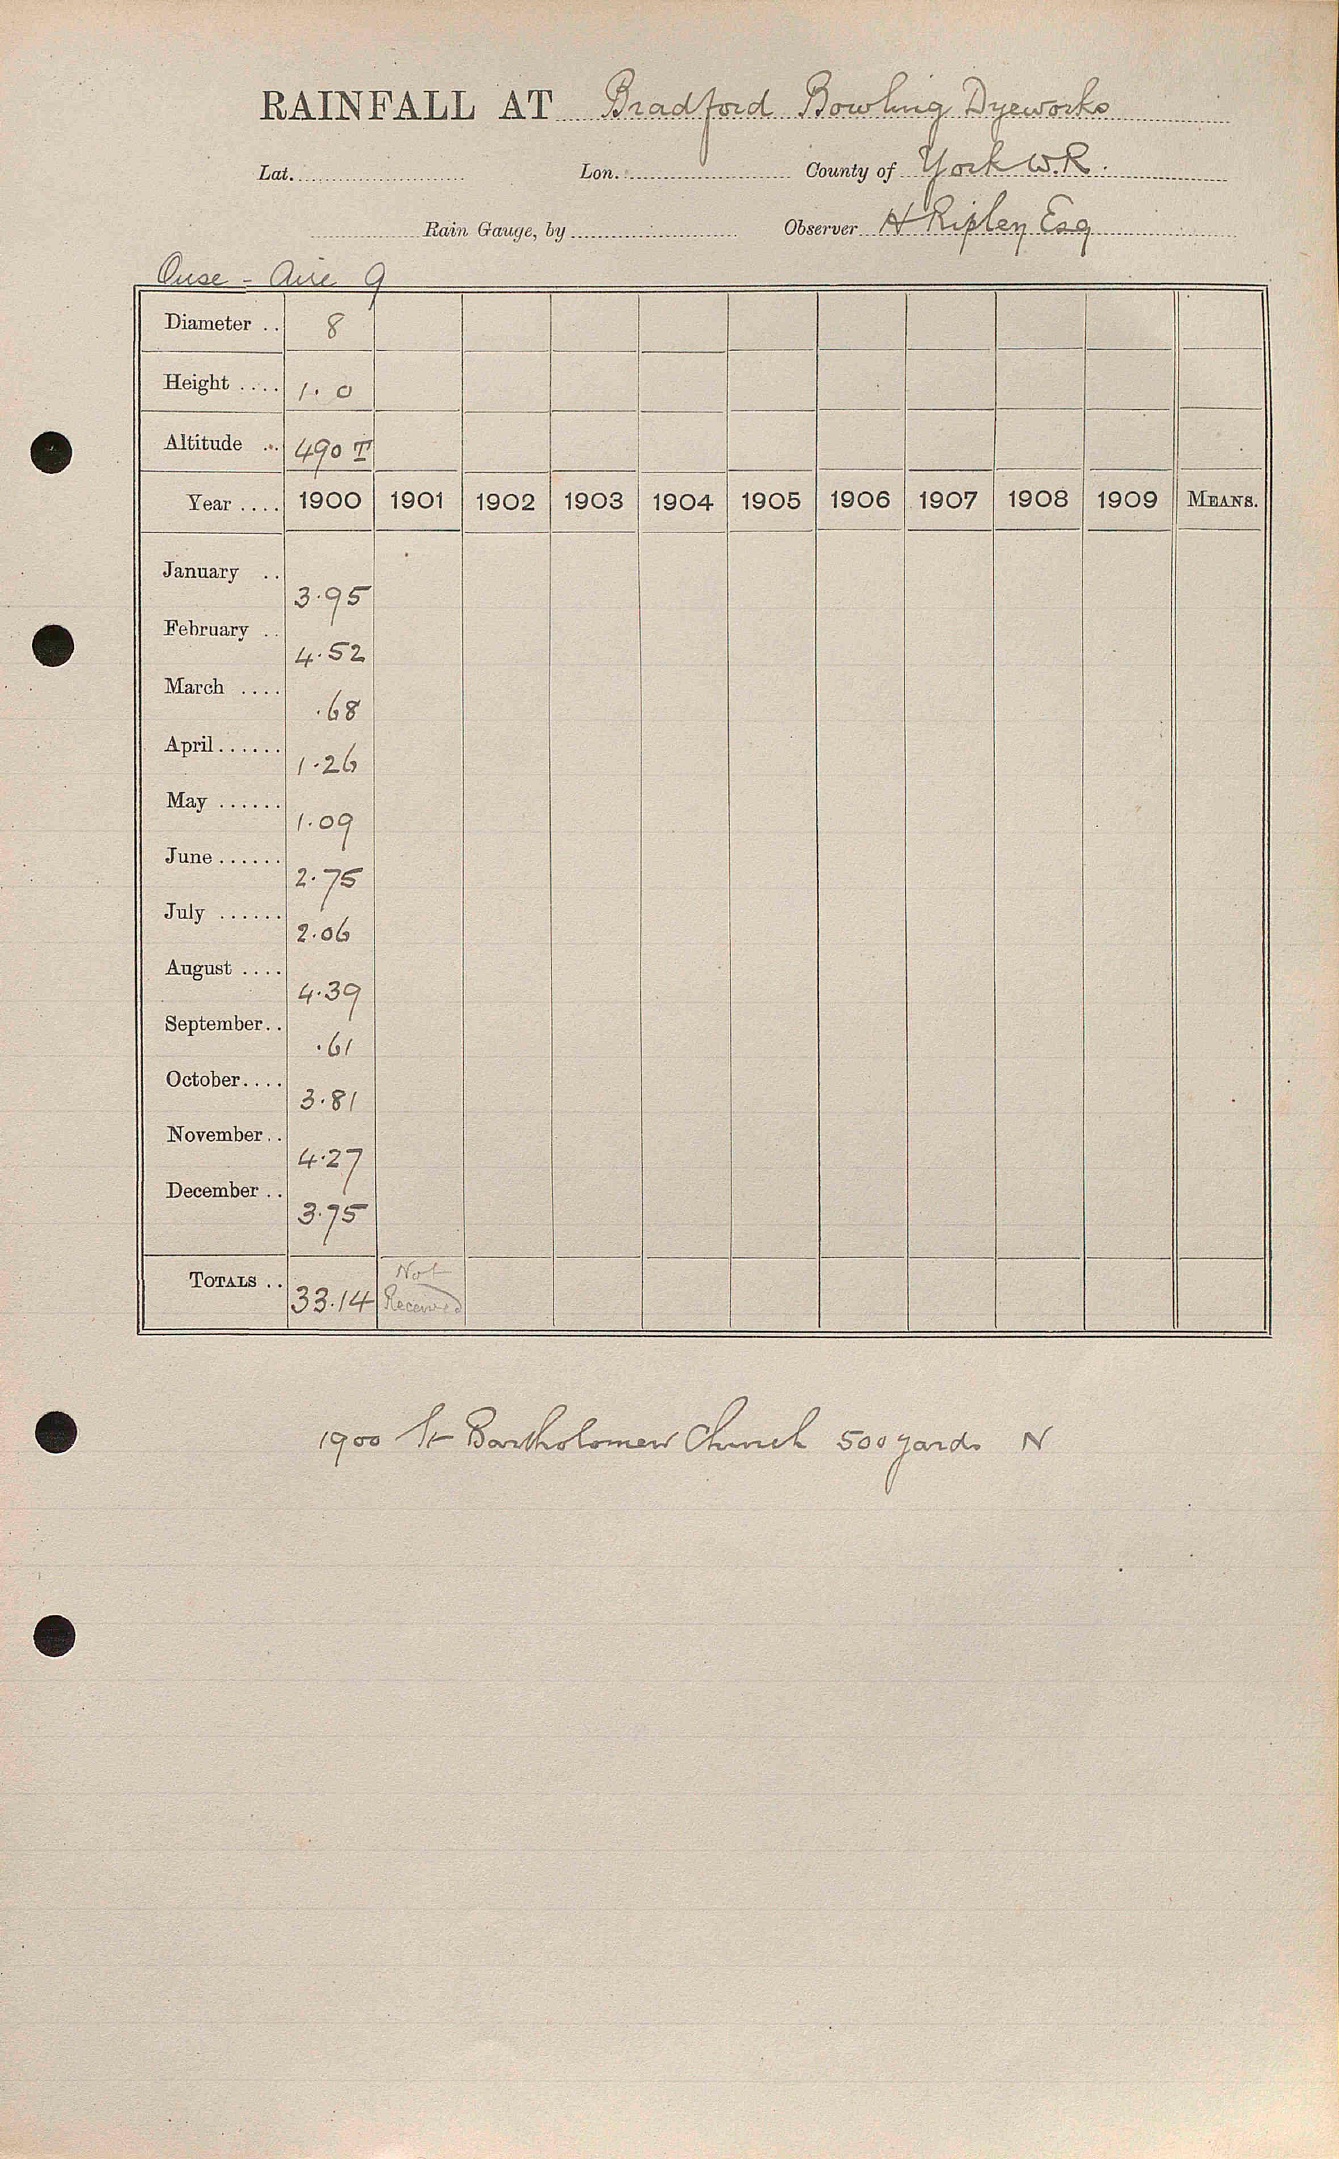 RAINFALL AT Bradford Bowling Dyeworks
Lat. Lon. County of York W.R.
Rain Gauge, by Observer H Ripley Esq
Ouse - Aire 9
Diameter .. 8
Height .... 1.0
Altitude .. 490 T
Year .... 1900 1901 1902 1903 1904 1905 1906 1907 1908 1909 MEANS.
January .. 3.95
February .. 4.52
March .... .68
April ...... 1.26
May ...... 1.09
June ...... 2.75
July ...... 2.06
August .... 4.39
September .. .61
October .... 3.81
November .. 4.27
December .. 3.75
TOTALS .. 33.14 Not Received
1900 St Bartholomew Church 500 yards N